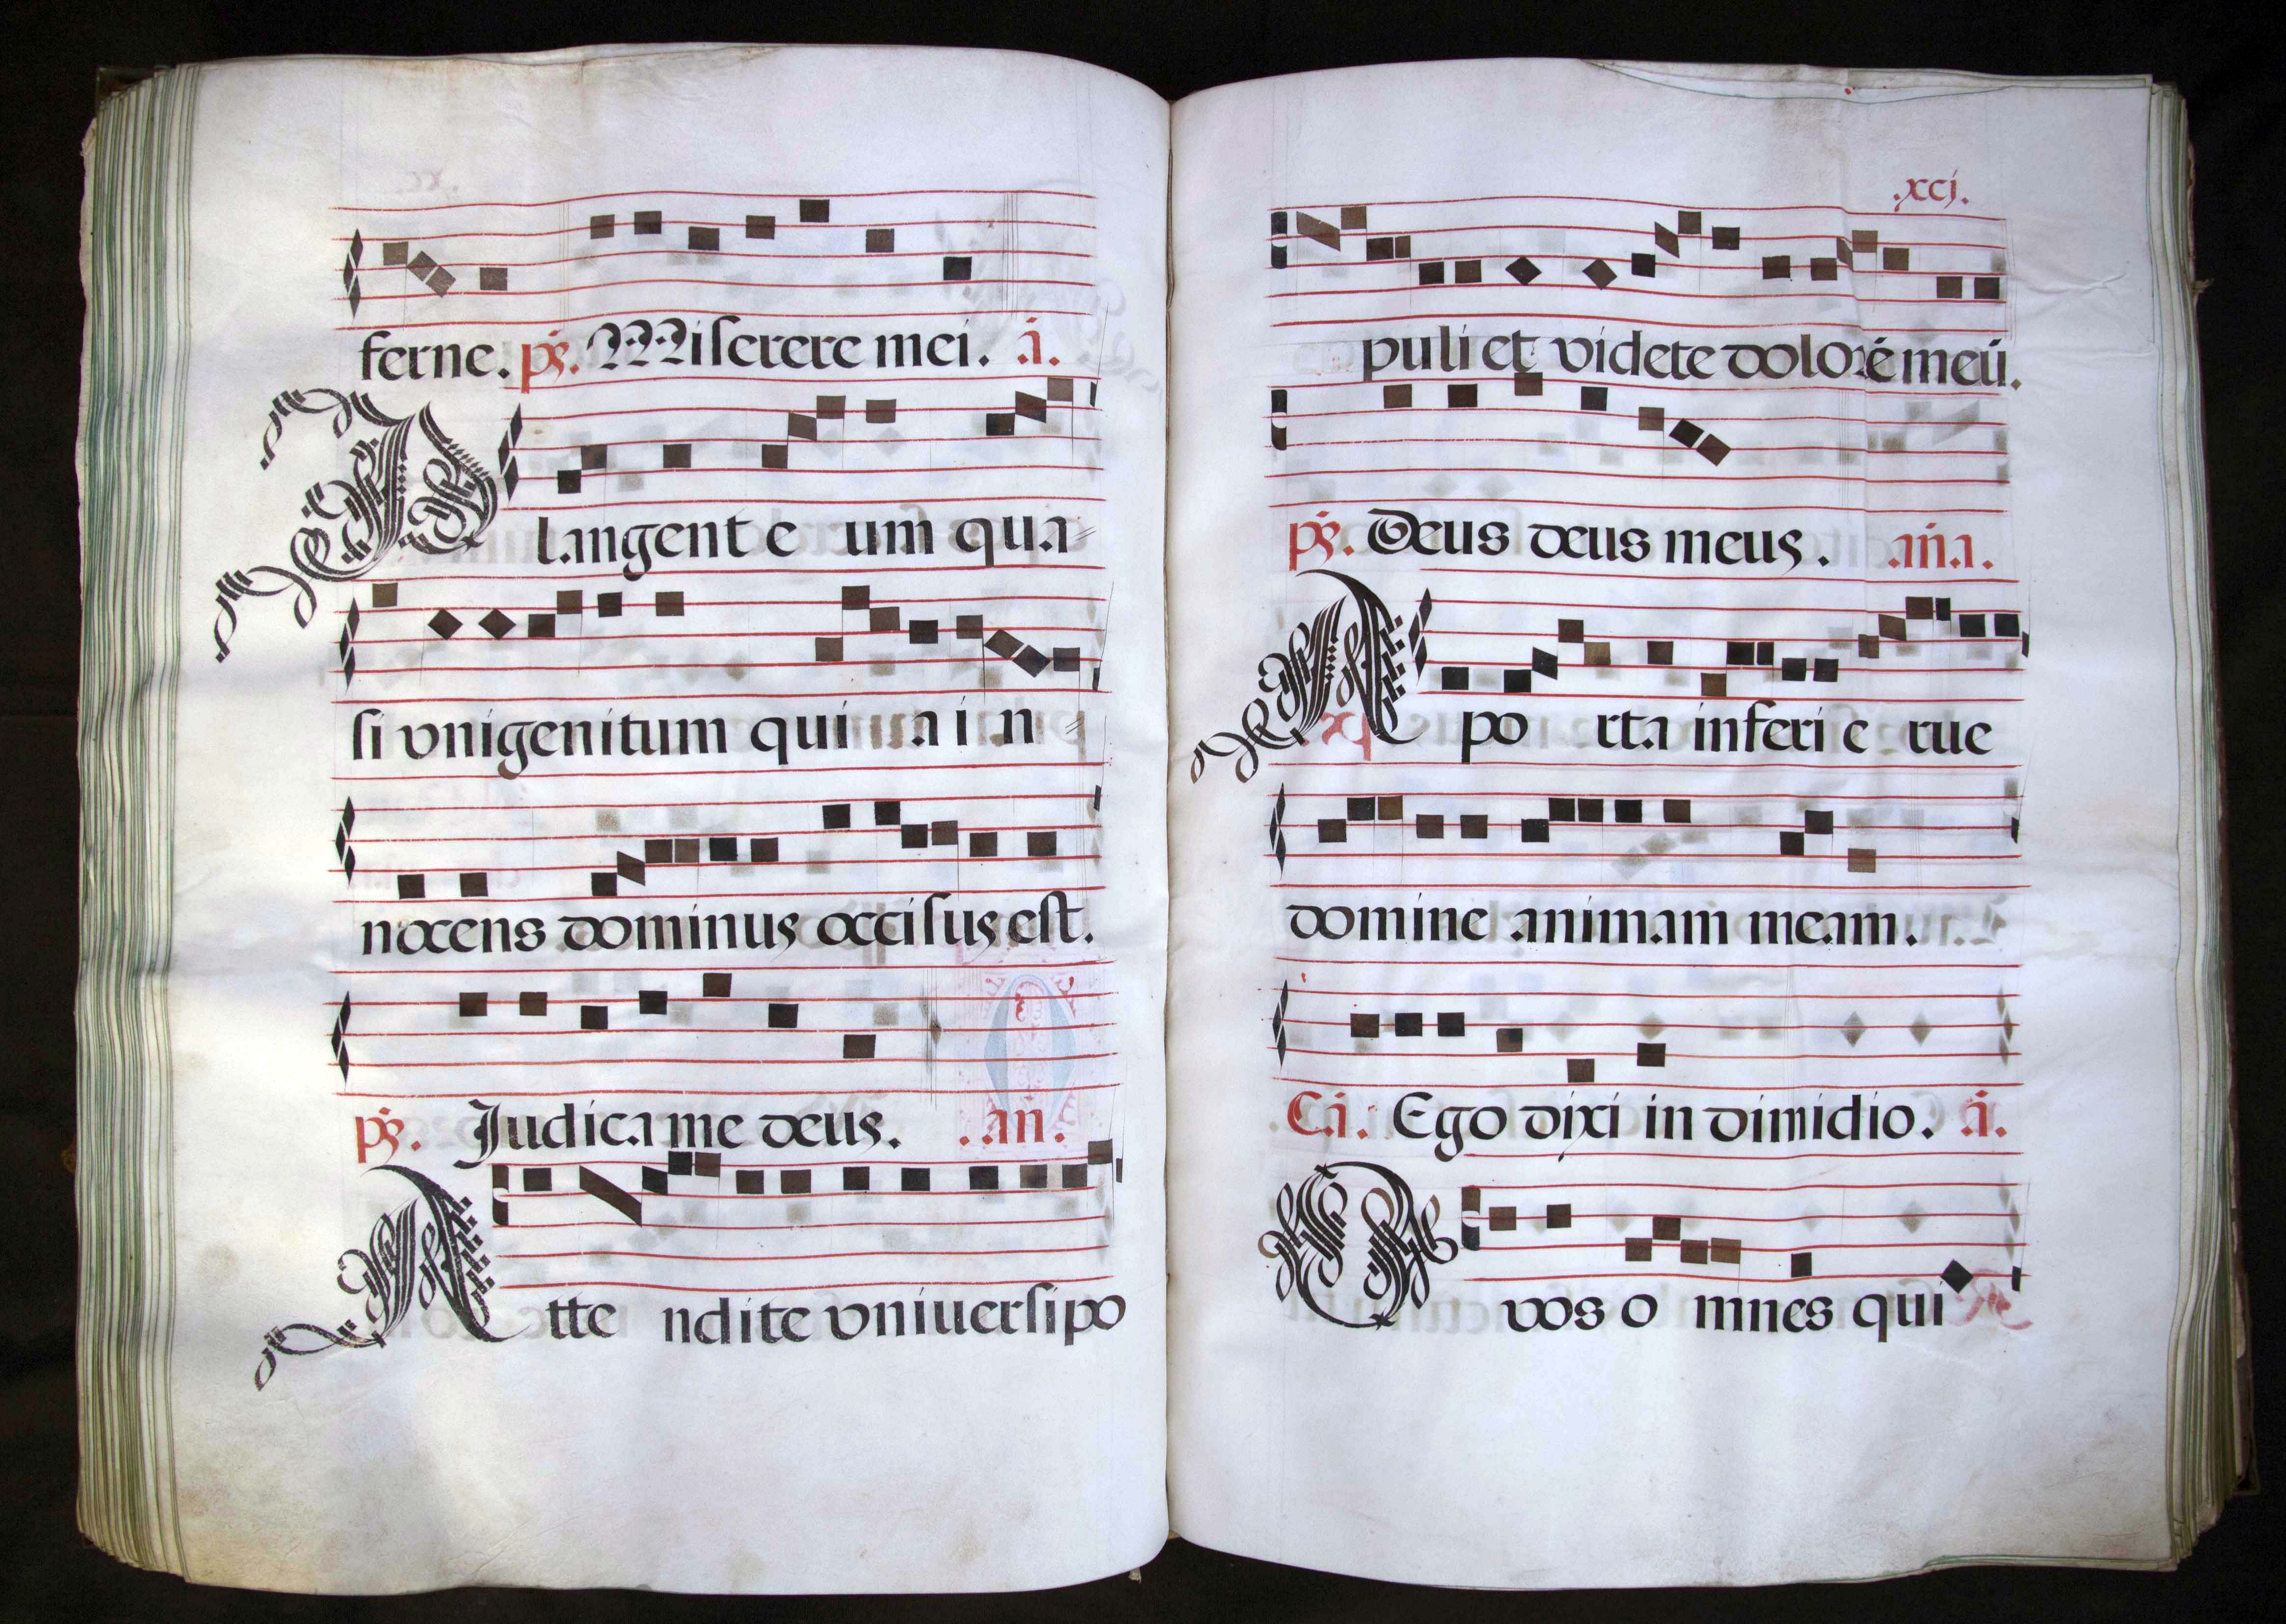 ferne. ps. Miserere mei. ā.
Plangent e um qua
si vnigenitum qui a i n
nocens dominus occisus est.
ps. Judica me deus. .an̄.
Atte ndite vniuersi po
.xcj.
puli et videte dolorē meū.
ps. Deus deus meus. an̄a.
A po rta inferi e rue
domine animam meam.
Cā. Ego dixi in dimidio. ā.
O vos o mnes qui